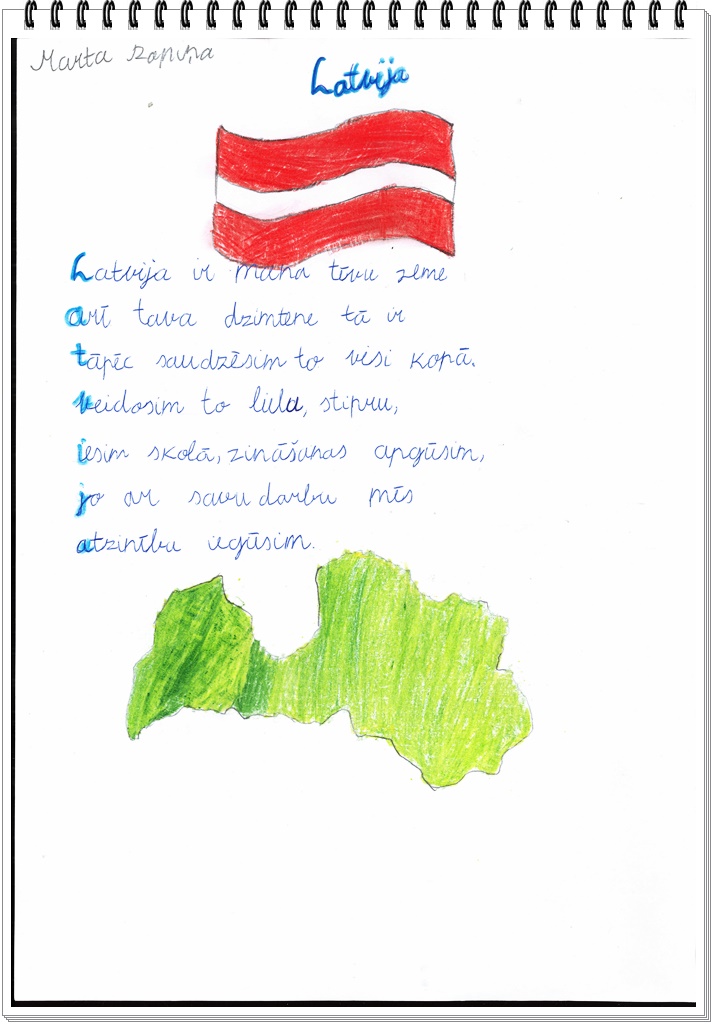 Marta
Latvija
Latvija ir mana tēvu zeme
arī tava dzimtene tā ir
tāpēc saudzēsim to visi kopā.
Veidosim to lielu, stipru,
iesim skolā, zināšanas apgūsim,
jo ar savu darbu mēs
atzinību iegūsim.